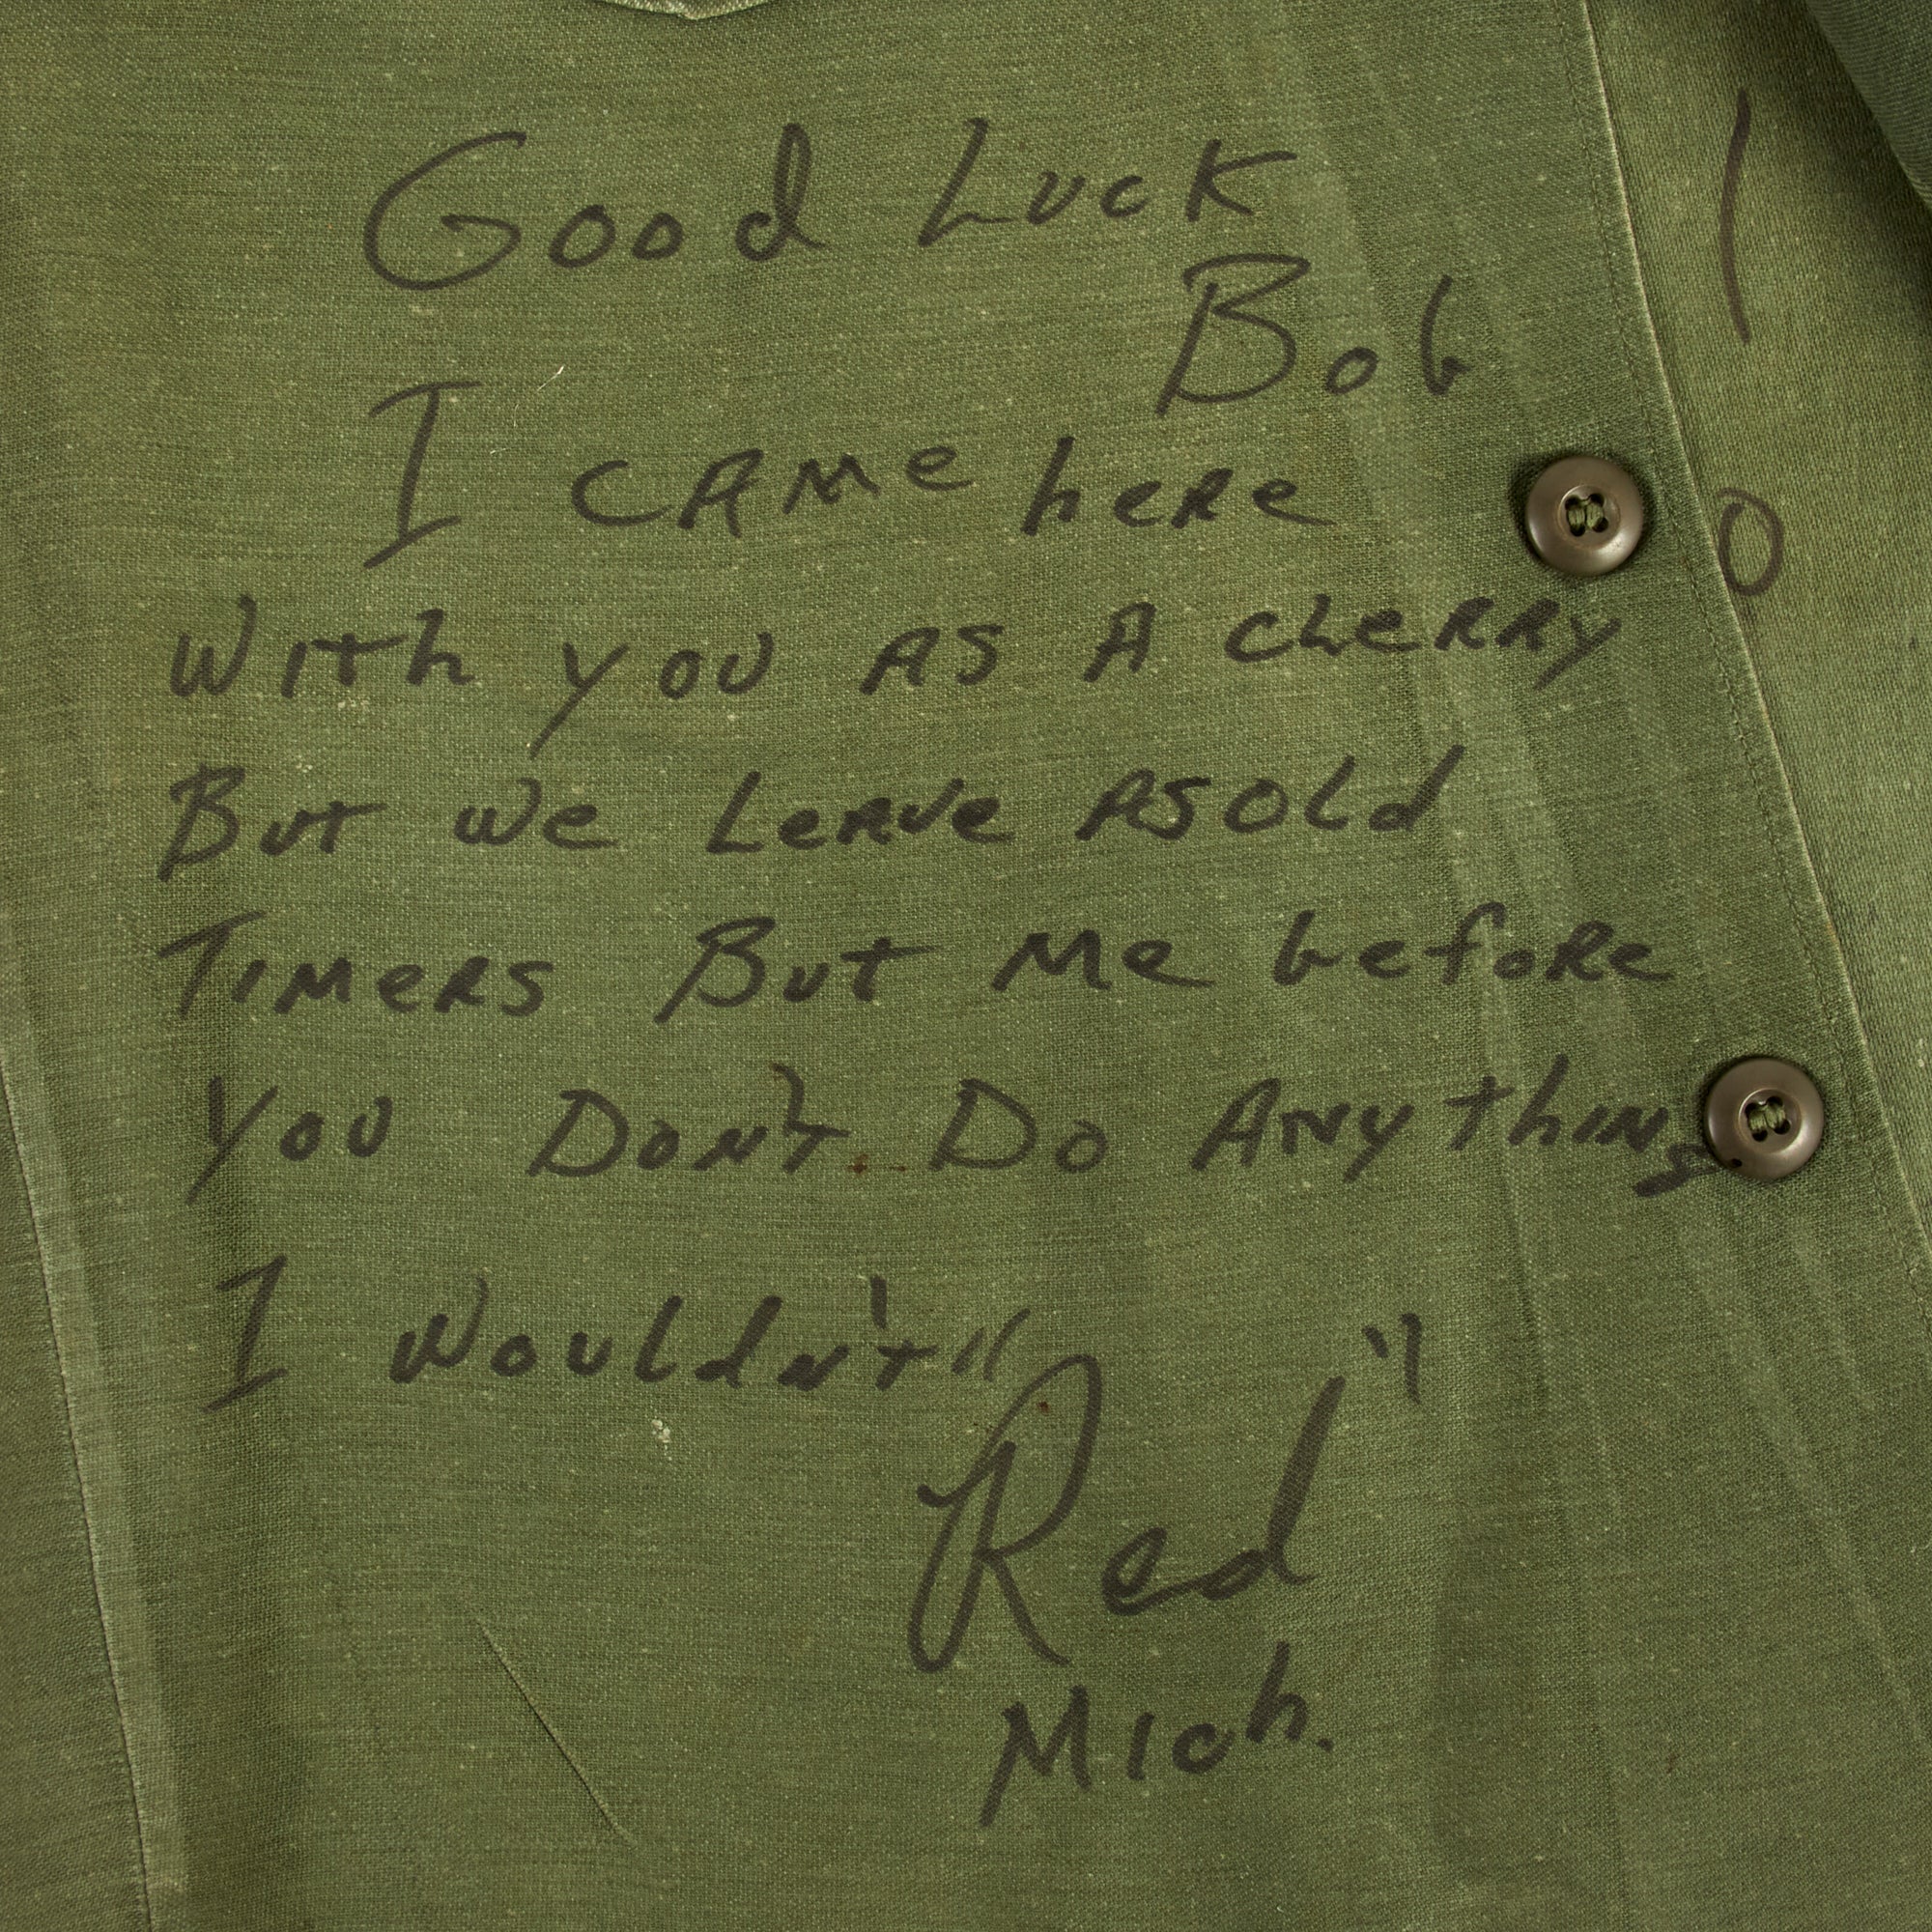 Good Luck
Bob
I CAMe heRe
With you AS A CheRRy
But we LeAve ASOLd
TiMeRS But Me befoRe
you Don't Do Anything
I Wouldn't "Red"
Mich.